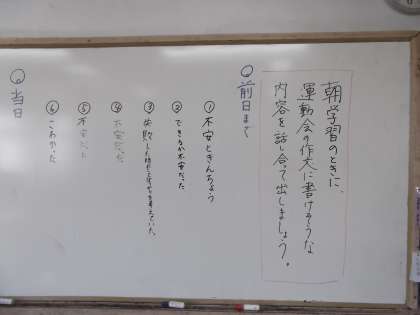 朝学習のときに、
運動会の作文に書けそうな
内容を話し合って出しましょう。
◎前日まで
①不安ときんちょう
②できるか不安だった
③失敗した時どうするか考えていた。
④不安だった
⑤不安だった
⑥こわかった
◎当日